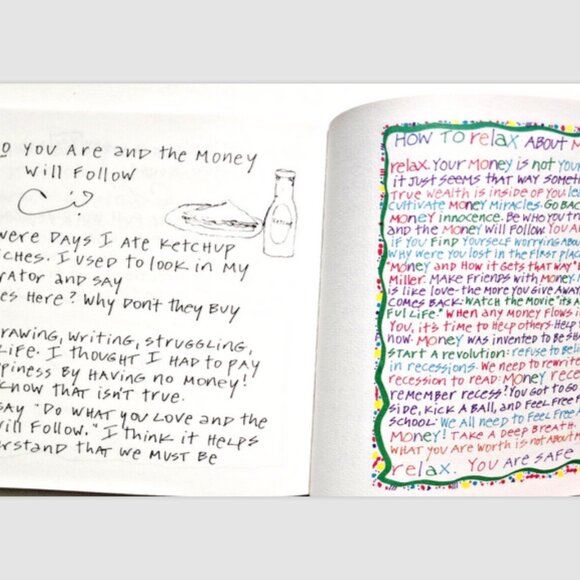 o You Are and the Money
Will Follow
were Days I Ate Ketchup
iches. I used to look in my
rator and say
es Here? Why Don't they Buy
rawing, writing, struggling,
Life. I thought I had to pay
piness by having no money!
know that isn't true.
say "Do what you love and the
will Follow." I think it helps
erstand that we must be
Ketchup
How to relax About M
relax. Your Money is not your
it just seems that way somet
True wealth is inside of you le
cultivate Money Miracles. Go Back
Money innocence. Be who you tr
and the Money Will Follow. You Ar
if you find yourself worrying about
why were you lost in the first place
"Money and How it gets that way"
Miller. Make Friends with Money.
is like love-the more you give away,
comes back. Watch the Movie "its A
Ful Life." When any Money flows in
You, it's time to Help others. Help
now. Money was invented to be sha
Start A revolution: refuse to Beli
in recessions. We need to rewrite
recession to read: Money rece
remember recess? You got to go
side, kick A Ball, and Feel Free F
school. We all need to Feel Free A
Money! Take a Deep Breath.
What you Are worth is not About
relax. You Are safe